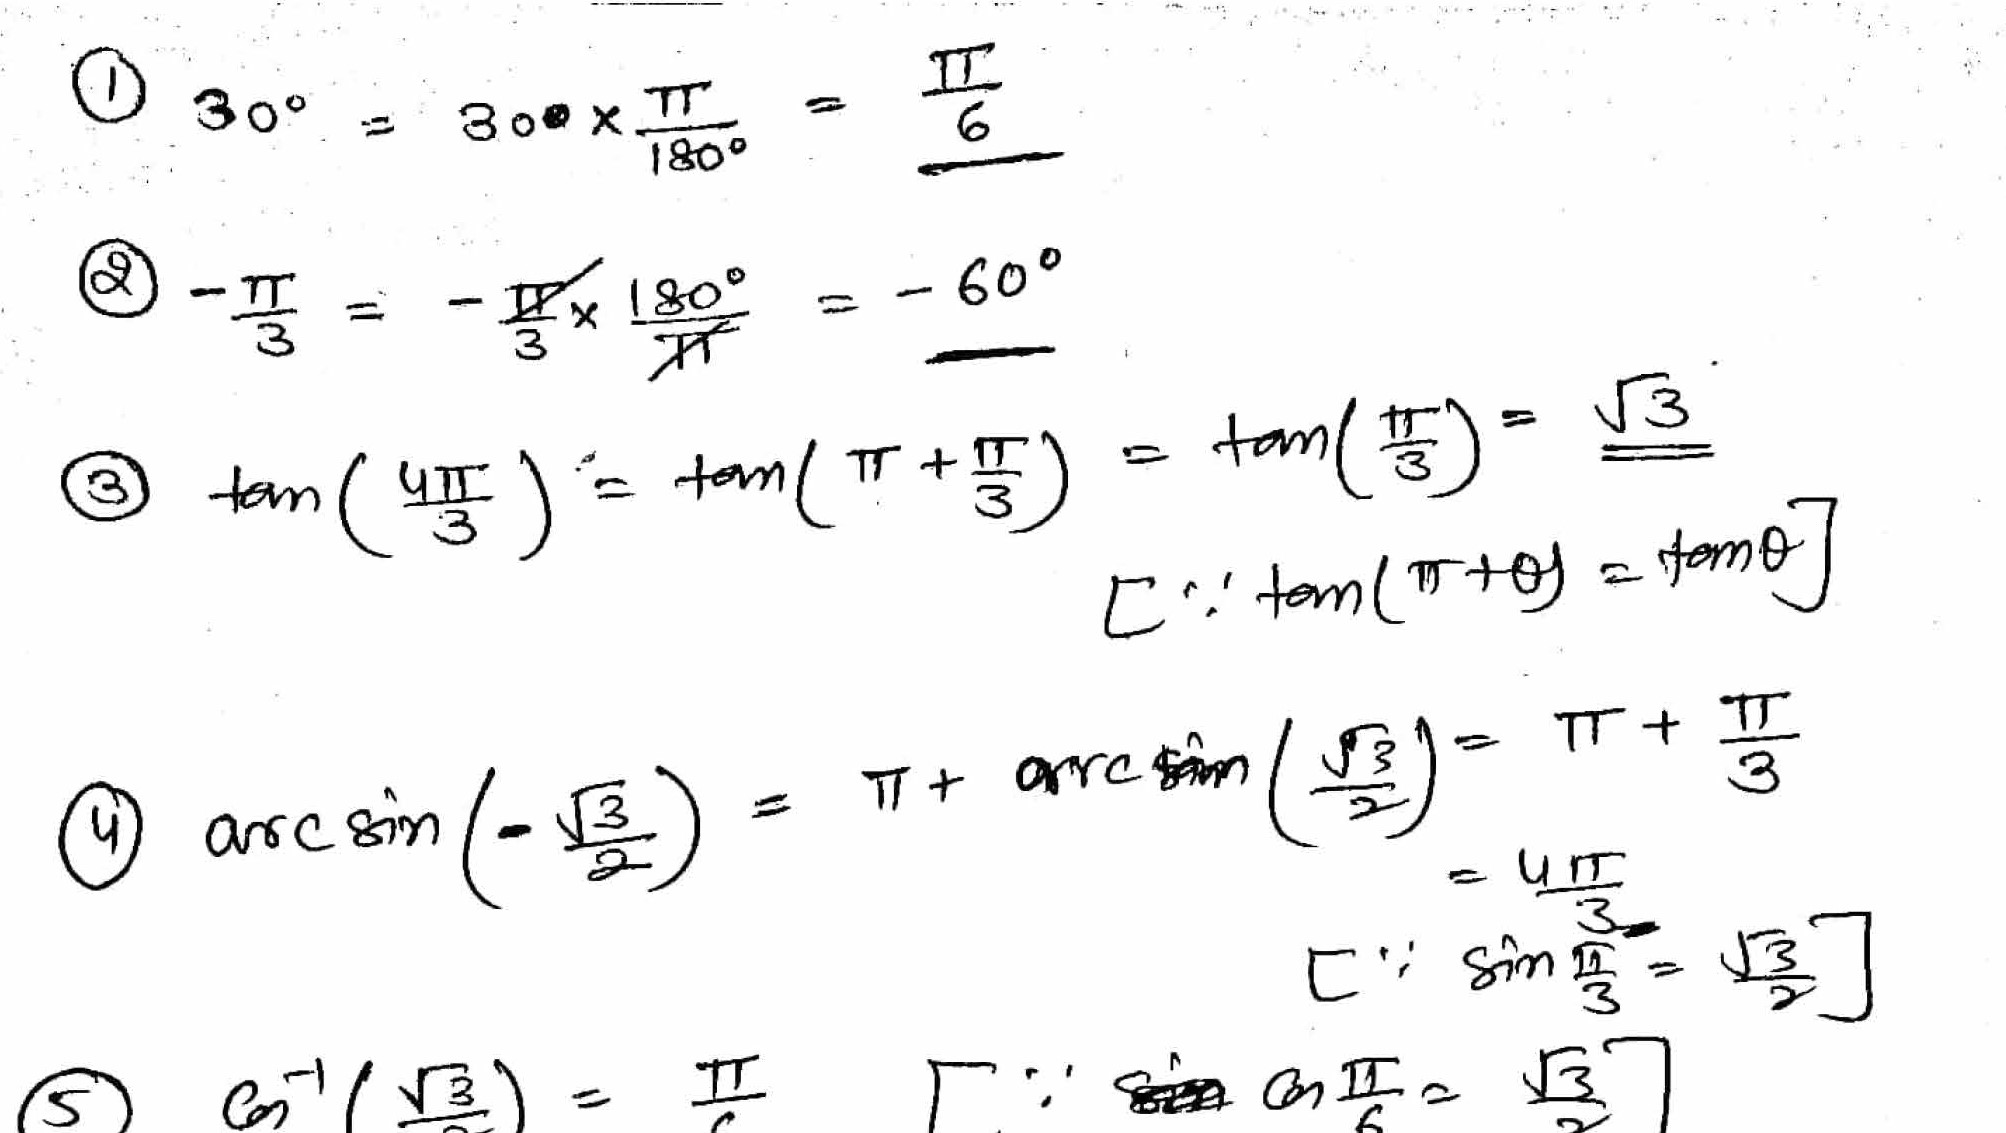 ① 30° = 30° × π/180° = π/6
② -π/3 = -π/3 × 180°/π = -60°
③ tan(4π/3) = tan(π + π/3) = tan(π/3) = √3
[∵ tan(π+θ) = tanθ]
④ arcsin(-√3/2) = π + arcsin(√3/2) = π + π/3
= 4π/3
[∵ sin π/3 = √3/2]
⑤ cos⁻¹(√3/2) = π/6 [∵ cos π/6 = √3/2]